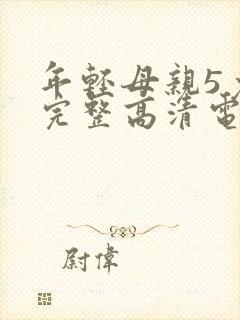 年輕母親5
完整高清電
尉偉